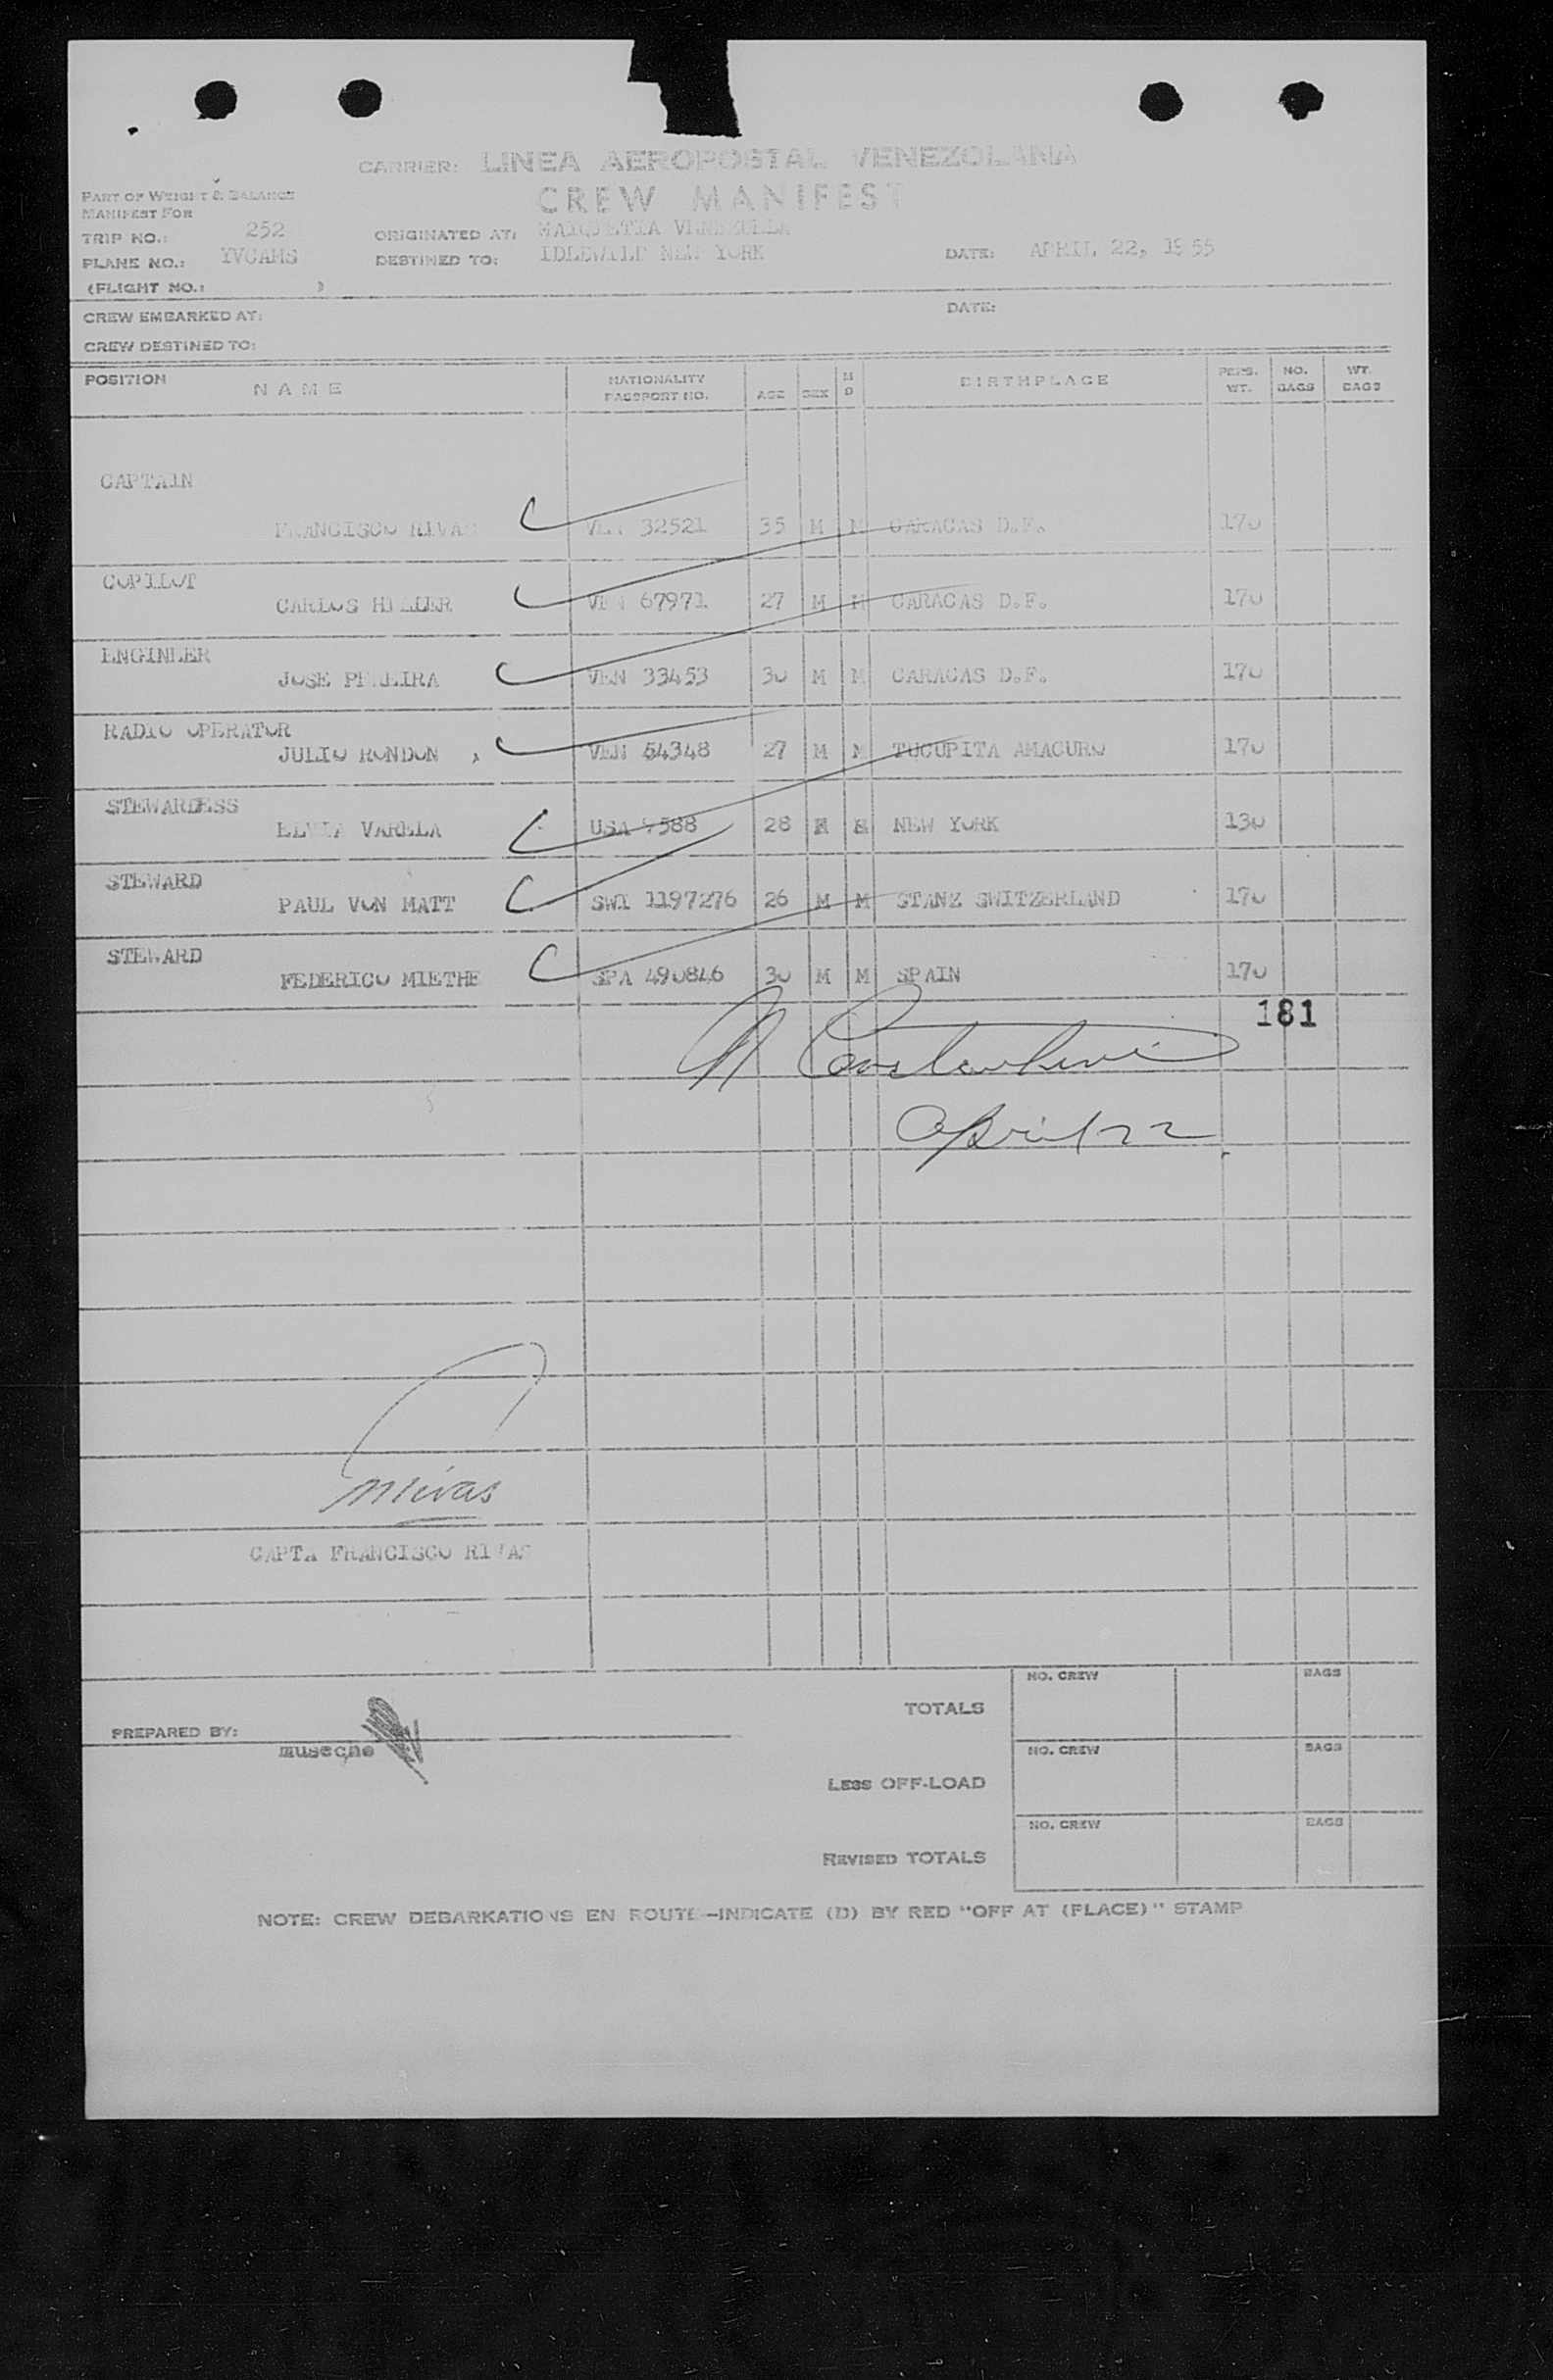 CARRIER: LINEA AEROPOSTAL VENEZOLANA
CREW MANIFEST
PART OF WEIGHT & BALANCE
MANIFEST FOR
TRIP NO.: 252 ORIGINATED AT: MAIQUETIA VENEZUELA
PLANE NO.: YVCAMS DESTINED TO: IDLEWILD NEW YORK DATE: APRIL 22, 1955
(FLIGHT NO.: )
CREW EMBARKED AT: DATE:
CREW DESTINED TO:
POSITION NAME NATIONALITY PASSPORT NO. AGE SEX M D BIRTHPLACE PERS. WT. NO. BAGS WT. BAGS
CAPTAIN
FRANCISCO RIVAS VEN 32521 35 M M CARACAS D.F. 170
COPILOT
CARLOS HILLER VEN 67971 27 M M CARACAS D.F. 170
ENGINEER
JOSE PEREIRA VEN 33453 30 M M CARACAS D.F. 170
RADIO OPERATOR
JULIO RONDON VEN 54348 27 M M TUCUPITA AMACURO 170
STEWARDESS
VARELA USA 28 NEW YORK 130
STEWARD
PAUL VON MATT SWI 1197276 26 M M STANZ SWITZERLAND 170
STEWARD
FEDERICO MIETHE SPA 490846 30 M M SPAIN 170
181
April 22
CAPTA FRANCISCO RIVAS
PREPARED BY:
museche
TOTALS NO. CREW BAGS
LESS OFF-LOAD NO. CREW BAGS
REVISED TOTALS NO. CREW BAGS
NOTE: CREW DEBARKATIONS EN ROUTE—INDICATE (D) BY RED "OFF AT (PLACE)" STAMP